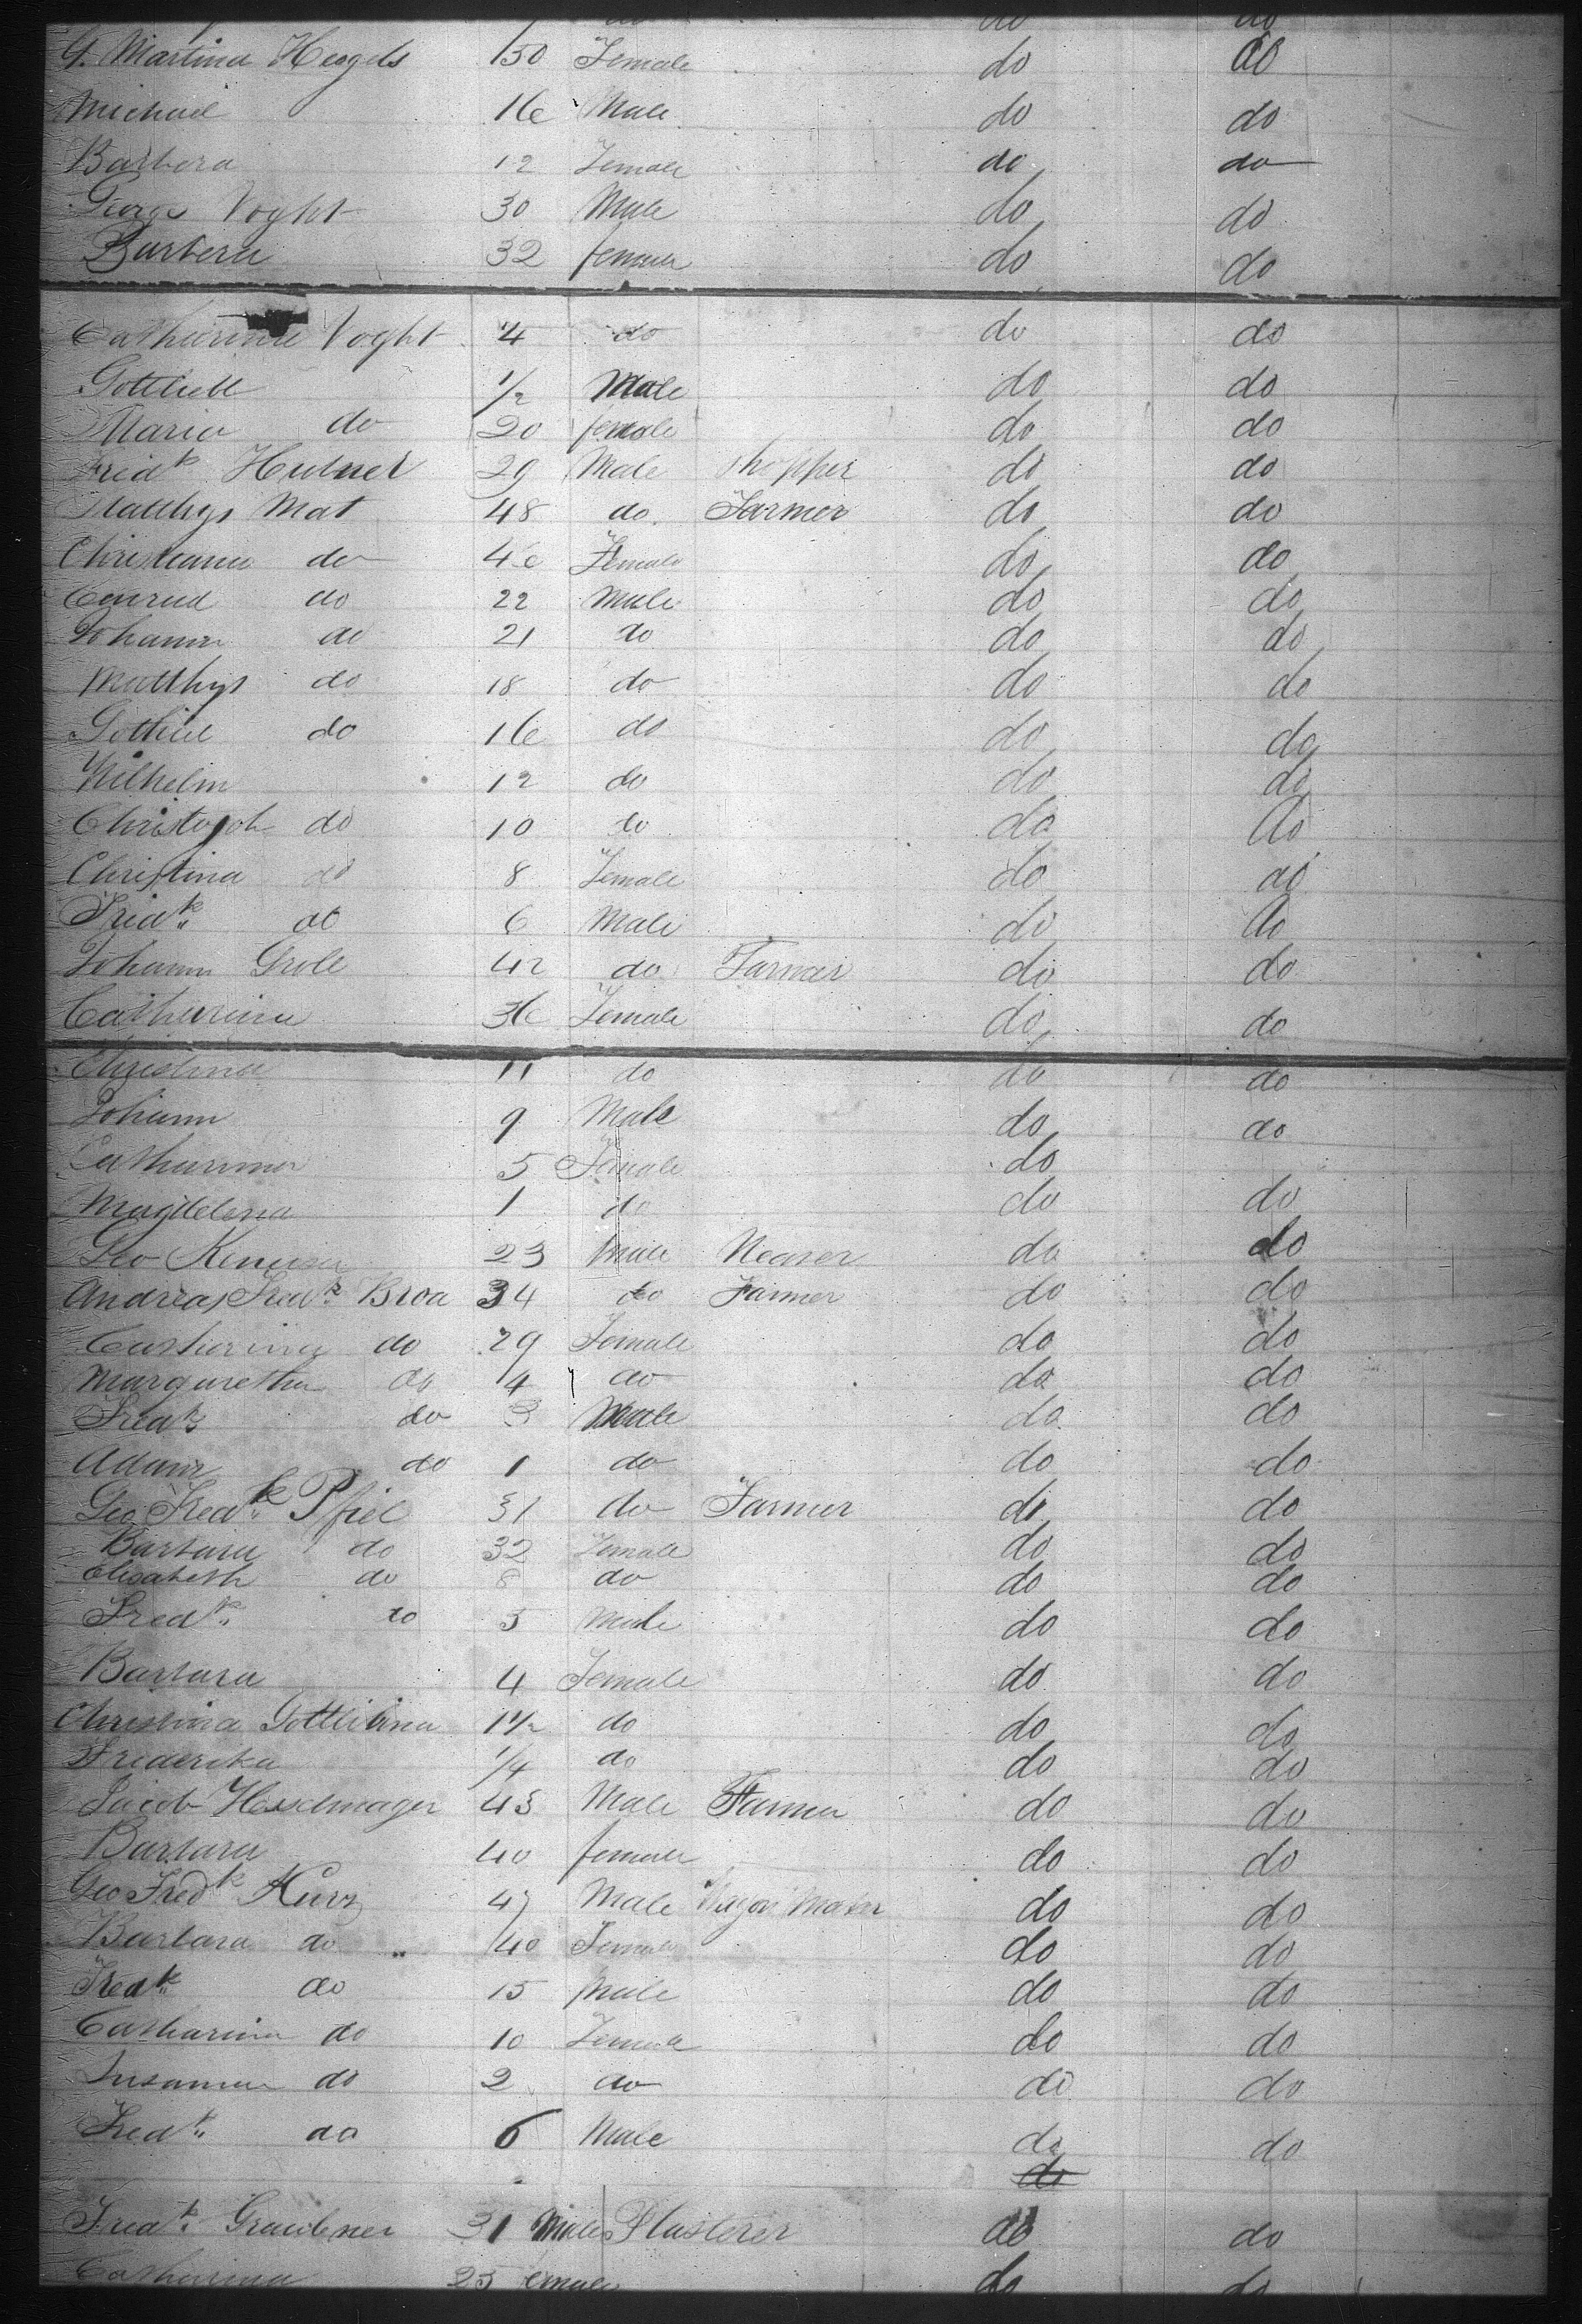 do do
G. Martina Hergels 50 Female do do
Michael 16 Male do do
Barbera 12 Female do do
George Voght 30 Male do do
Barbera 32 female do do
Catharina Voght 4 do do do
Gottlieb 1/2 Male do do
Maria do 20 female do do
Fredk Hubner 29 Male do do
Matthys Mat 48 do Farmer do do
Christiana do 46 Female do do
Conrad do 22 Male do do
Johann do 21 do do do
Matthys do 18 do do do
Gottlieb do 16 do do do
Wilhelm 12 do do do
Christoph do 10 do do do
Christina do 8 Female do do
Fredk do 6 Male do do
Johann Grole 42 do Farmer do do
Catharina 36 Female do do
Christina 11 do do do
Johann 9 Male do do
Catharina 5 Female do
Magdelena 1 do do do
Geo 23 Male Weaver do do
Andreas Fredk Broa 34 do Farmer do do
Catharina do 29 Female do do
Margaretha do 4 do do do
Fredk do 3 Male do do
Adam do 1 do do do
Geo Fredk Pfiel 31 do Farmer do do
Barbara do 32 Female do do
Elisabeth do 8 do do do
Fredk do 5 Male do do
Barbara 4 Female do do
Christina Gottlibina 1 1/2 do do do
Frederika 1/4 do do do
Jacob Hesselmager 43 Male Farmer do do
Barbara 40 female do do
Geo Fredk Kurz 47 Male Wagon Maker do do
Barbara do 40 Female do do
Fredk do 15 Male do do
Catharina do 10 Female do do
Susanna do 2 do do do
Fredk do 6 Male do do
do
Fredk Graubner 31 Male Plasterer do do
Catharina 25 emale do do